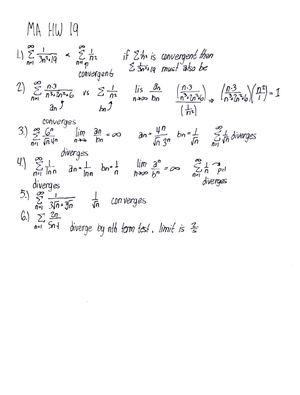 MA HW 19
1.) ∞Σn=1 1/(3n²+19) < ∞Σn=1 1/n² if Σ1/n² is convergent then
convergent Σ 1/(3n²+19) must also be
2.) ∞Σn=1 n·3/(n³+2n²+6) vs Σ 1/n² lim n→∞ an/bn (n·3/(n³+2n²+6))/(1/n²) → (n·3/(n³+2n²+6))(n²/1) = 1
an↑ bn↑
converges
3.) ∞Σn=1 6ⁿ/(√n 4ⁿ) lim n→∞ an/bn = ∞ an = 4ⁿ/(√n 3ⁿ) bn = 1/√n ∞Σn=1 1/√n diverges
diverges
4.) ∞Σn=1 1/ln n an = 1/ln n bn = 1/n lim n→∞ = ∞ ∞Σn=1 1/n → p=1
diverges diverges
5.) ∞Σn=1 1/√n converges
6.) Σ 2n/(5n-1) diverge by nth term test, limit is 2/5